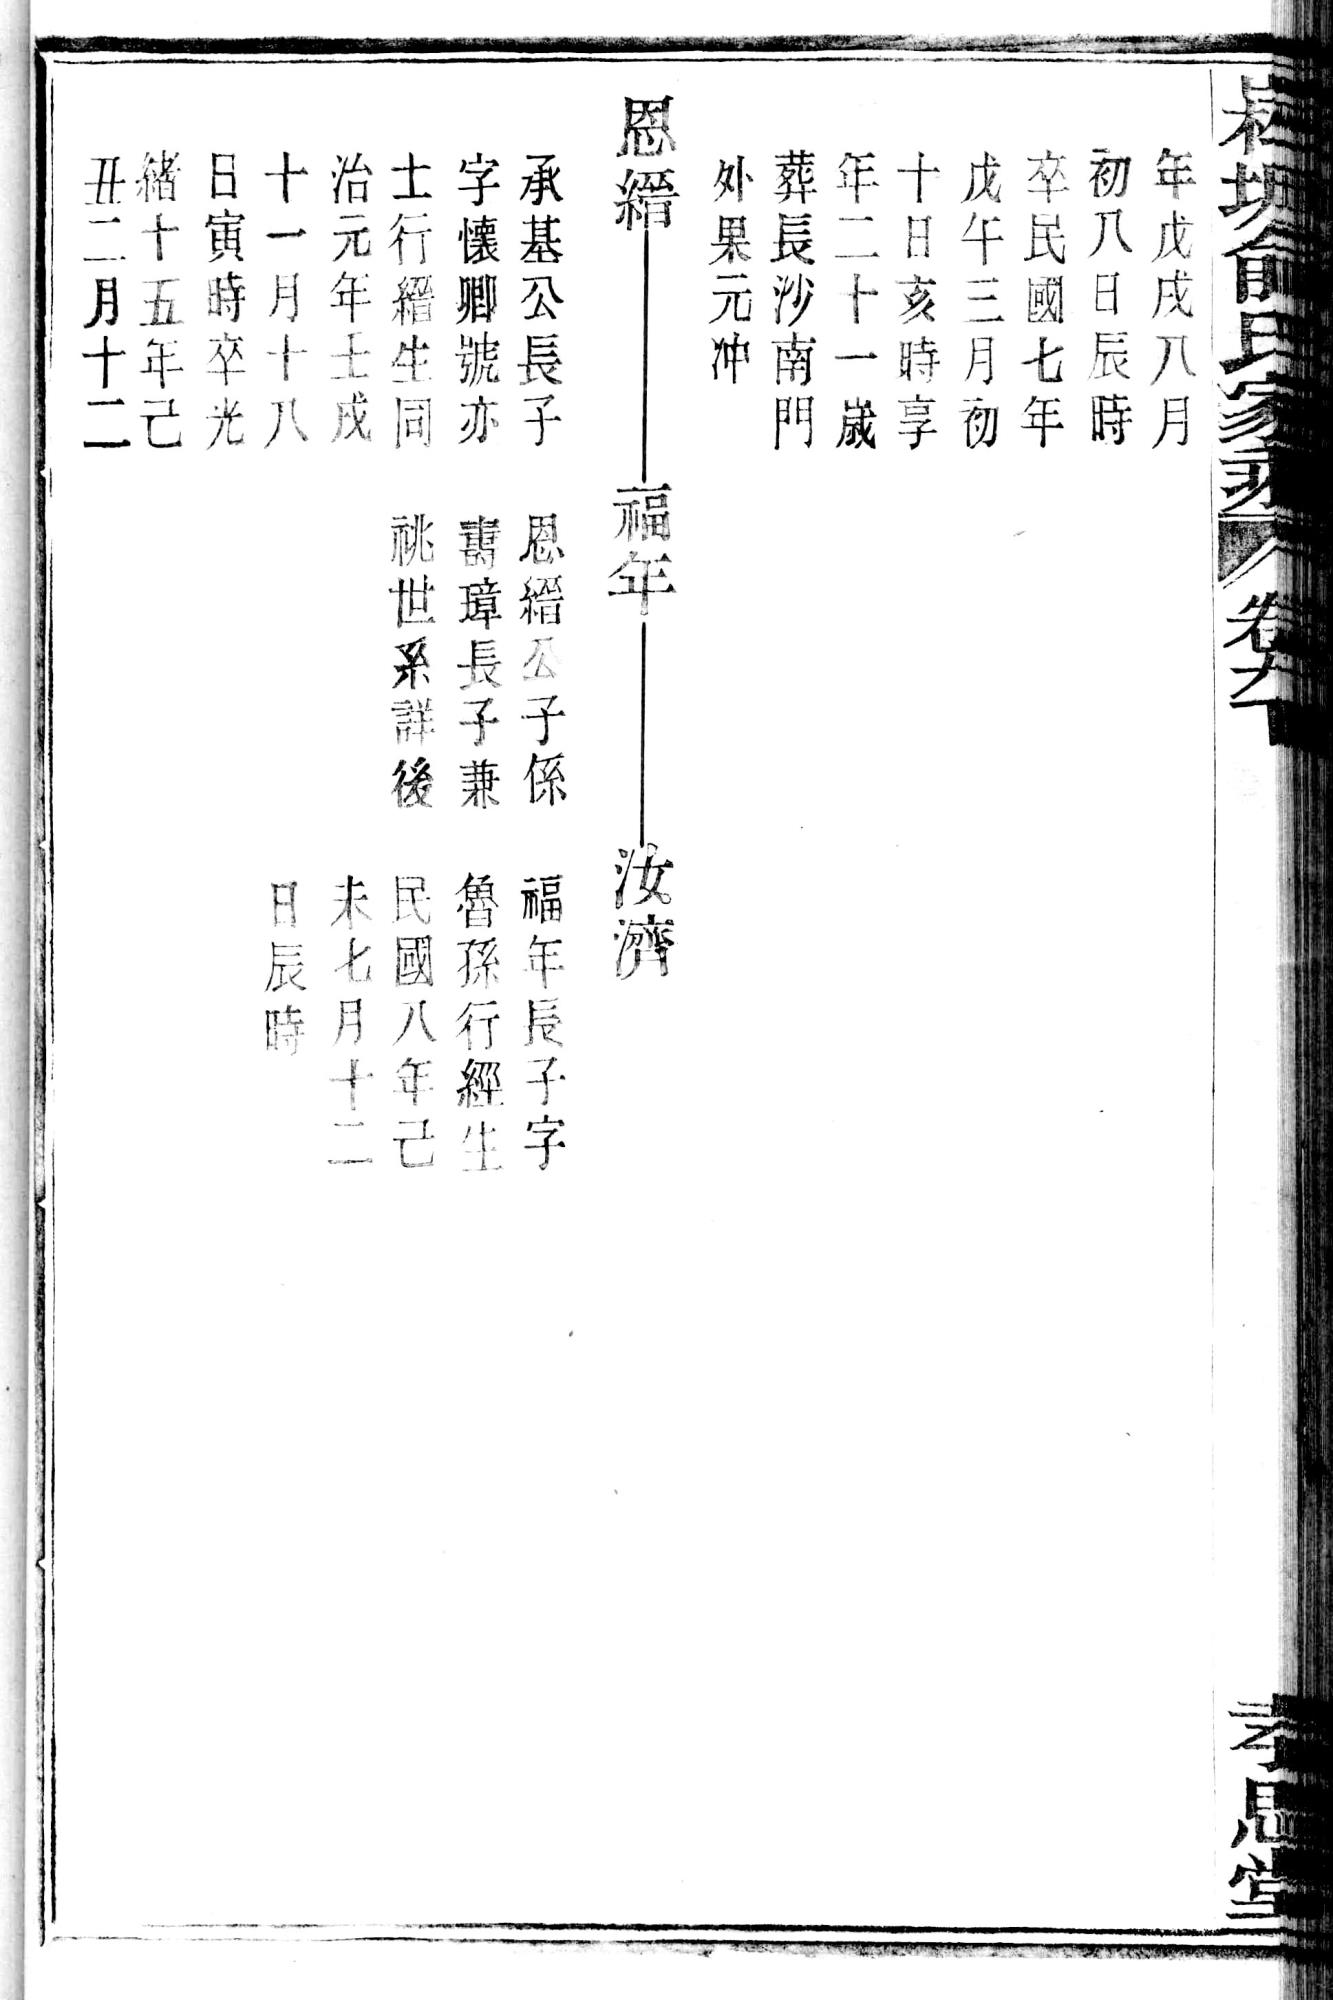 年戊戌八月
初八日辰時
卒民國七年
戊午三月初
十日亥時享
年二十一歲
葬長沙南門
外果元冲
恩縉
承基公長子
字懷卿號亦
士行縉生同
治元年壬戌
十一月十八
日寅時卒光
緒十五年己
丑二月十二
福年
恩縉公子係
壽璋長子兼
祧世系詳後
汝濟
福年長子字
魯孫行經生
民國八年己
未七月十二
日辰時
俞氏家乘
孝思堂